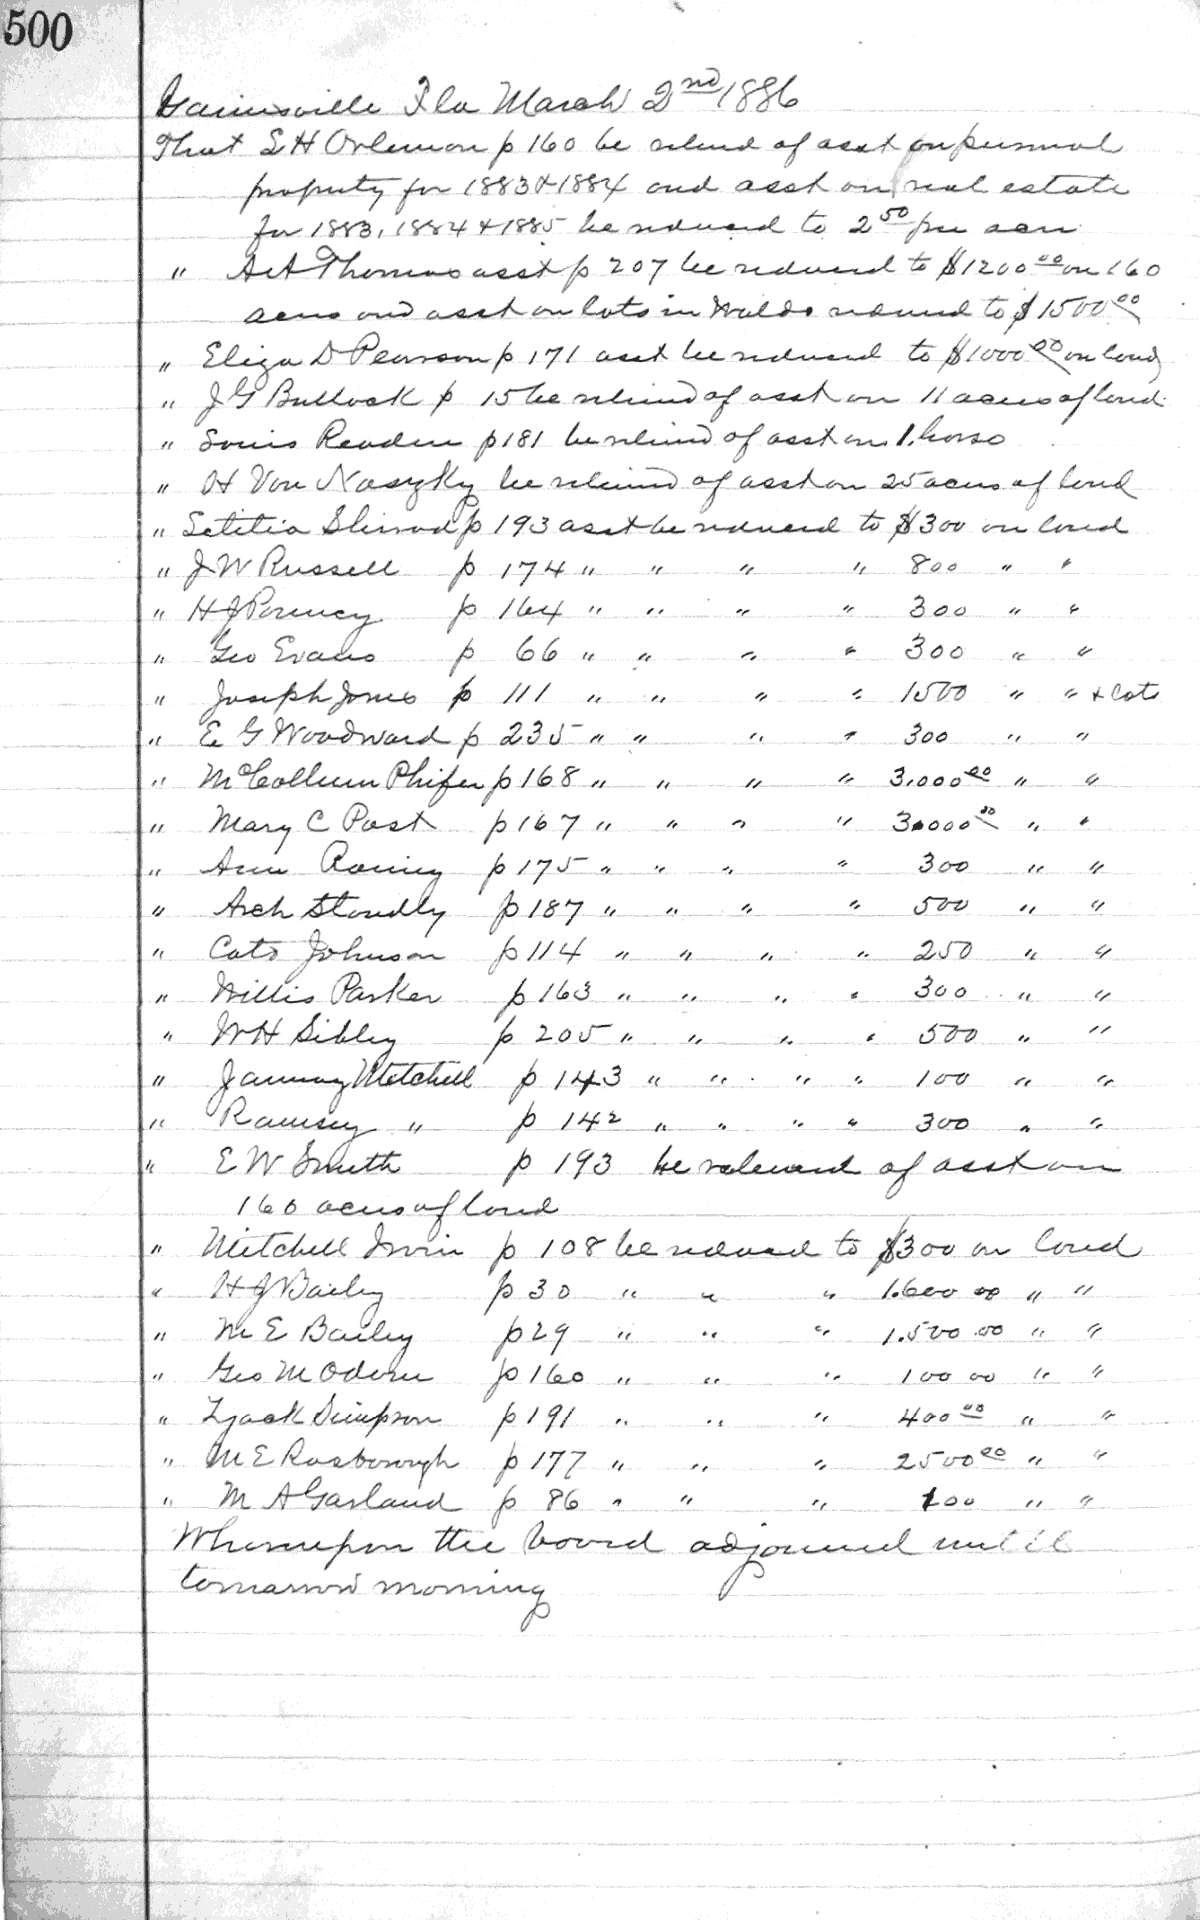 500
Gainesville Fla March 2nd 1886
That L H Orlemon p 160 be relievd of asst on personal
property for 1883 & 1884 and asst on real estate
for 1883, 1884 & 1885 be reduced to 2 50 per acre
" Thomas asst p 207 be reduced to $1200 00 on 160
acres and asst on lots in Waldo reduced to $1500 00
" Eliza D Pearson p 171 asst be reduced to $1000 00 on land
" J G Bullock p 15 be relievd of asst on 11 acres of land
" Louis Readen p 181 be relievd of asst on 1 horse
" H Von Nasyky be relievd of asst on 25 acres of land
" Letitia Sherrod p 193 asst be reduced to $300 on land
" J W Russell p 174 " " " " 800 " "
" H J p 164 " " " " 300 " "
" Geo Evans p 66 " " " " 300 " "
" Joseph Jones p 111 " " " " 1500 " " & lots
" E G Woodward p 235 " " " " 300 " "
" McCollum Phifer p 168 " " " " 3,000 00 " "
" Mary C Post p 167 " " " " 3000 00 " "
" Ann Rainey p 175 " " " " 300 " "
" Arch Standly p 187 " " " " 500 " "
" Cato Johnson p 114 " " " " 250 " "
" Willis Parker p 163 " " " " 300 " "
" W H Sibley p 205 " " " " 500 " "
" January Mitchell p 143 " " " " 100 " "
" Ramsey " p 142 " " " " 300 " "
" E W Smith p 193 be relieved of asst on
160 acres of land
" Mitchell Irvin p 108 be reduced to $300 on land
" H J Bailey p 30 " " " 1.600 00 " "
" M E Bailey p 29 " " " 1.500.00 " "
" Geo M Odem p 160 " " " 100 00 " "
" Zjack Simpson p 191 " " " 400 00 " "
" M E Rosborough p 177 " " " 2500 00 " "
" M A Garland p 86 " " " 100 " "
Whereupon the board adjourned until
tomorrow morning